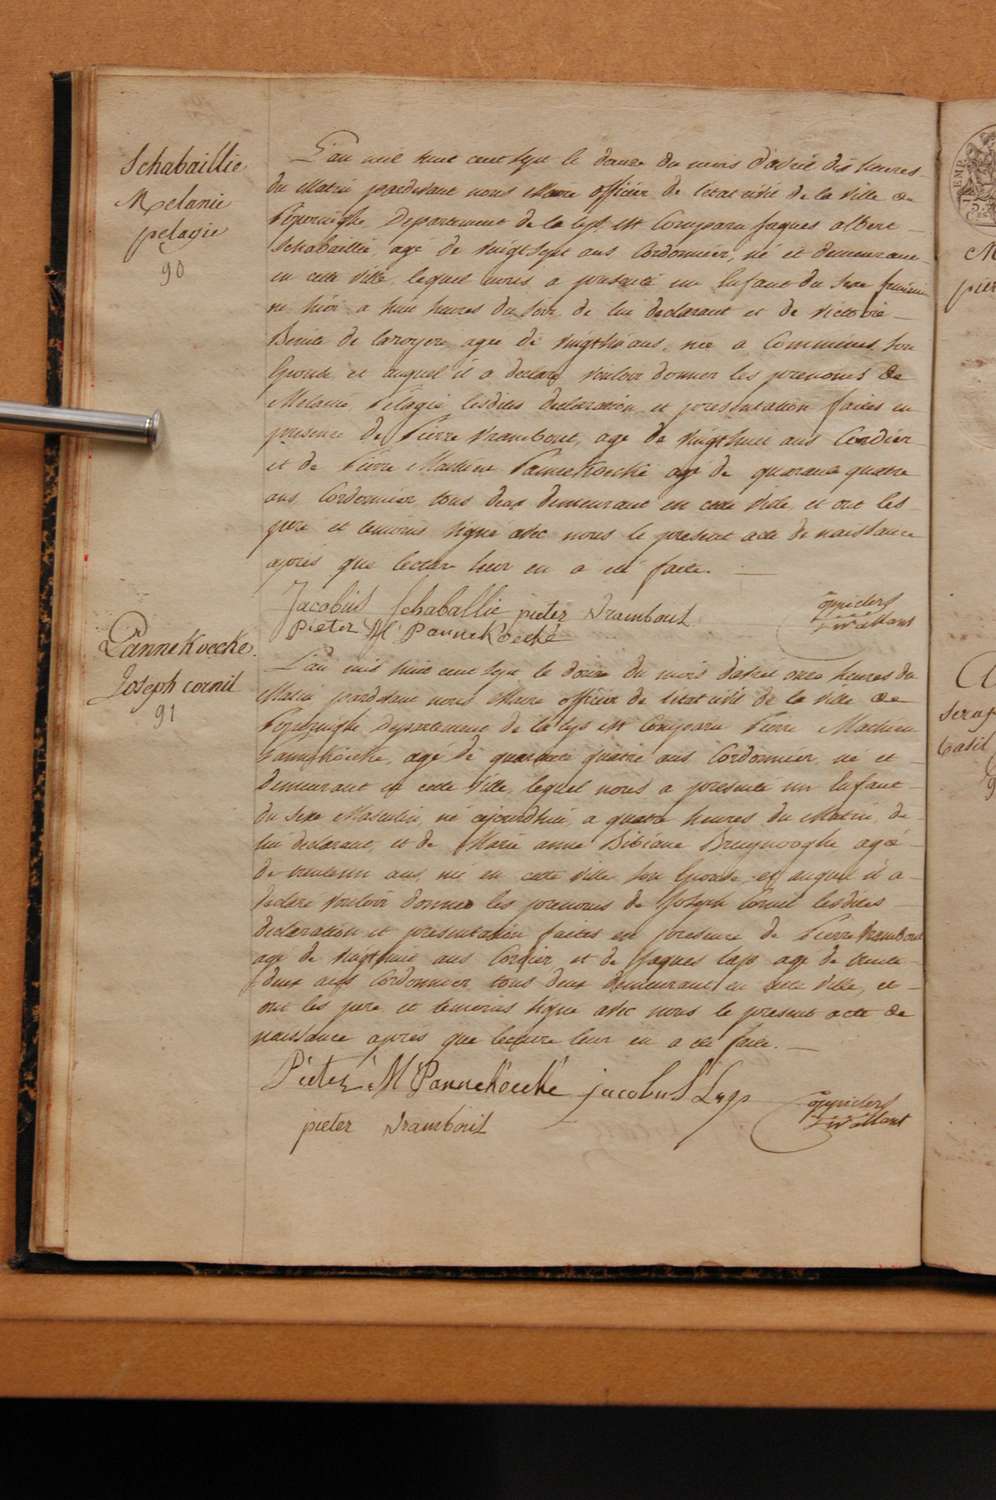 Schabaillie
Melanie
pelagie
90
L'an mil huit cent sept le douze du mois d'avril dix heures
du Matin pardevant nous Maire officier de l'état civil de la ville de
Poperinghe Departement de la Lys est Comparu Jaques albert
Schabaillie, agé de vingt sept ans, Cordonnier, né et demeurant
en cette ville, lequel nous a presenté un Enfant du Sexe feminin
né hier a huit heures du soir, de lui declarant et de victoire
de agée de vingt ans, née a Commines, son
Epouse, et auquel il a declaré vouloir donner les prenoms de
Melanie, Pelagie, lesdites declaration et presentation faites en
presence de Pierre Drambout, agé de vingthuit ans Cordier
et de Pierre Mathieu Pannekoecke agé de quarante quatre
ans, Cordonnier, tous deux demeurant en cette ville, et ont les
pere et temoins signé avec nous le present acte de naissance
après que lecture leur en a été faite.
Jacobus Schaballie pieter Drambout
Pieter M Pannekoecke
Pannekoecke
Joseph cornil
91
L'an mil huit cent sept le douze du mois d'avril onze heures du
Matin pardevant nous Maire officier de l'état civil de la ville de
Poperinghe Departement de la Lys est Comparu Pierre Mathieu
Pannekoecke, agé de quarante quatre ans Cordonnier, né et
demeurant en cette ville, lequel nous a presenté un Enfant
du Sexe Masculin, né aujourdhui, a quatre heures du Matin, de
lui declarant, et de Marie anne Bibiane Bruynooghe, agée
de ans, née en cette ville son Epouse, et auquel il a
declaré vouloir donner les prenoms de Joseph Cornil lesdites
declaration et presentation faites en presence de Pierre Drambout
agé de vingthuit ans Cordier et de Jaques Lays agé de trente
deux ans Cordonnier, tous deux demeurant en cette ville, et
ont les pere et temoins signé avec nous le present acte de
naissance après que lecture leur en a été faite.
Pieter M Pannekoecke jacobus Lays
pieter Drambout